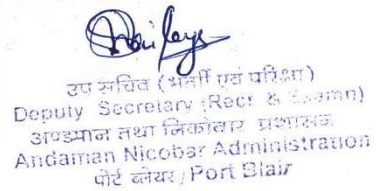 उप सचिव (भर्ती एवं परीक्षा)
Deputy Secretary (Recr. & Examn)
अण्डमान तथा निकोबार प्रशासन
Andaman Nicobar Administration
पोर्ट ब्लेयर / Port Blair